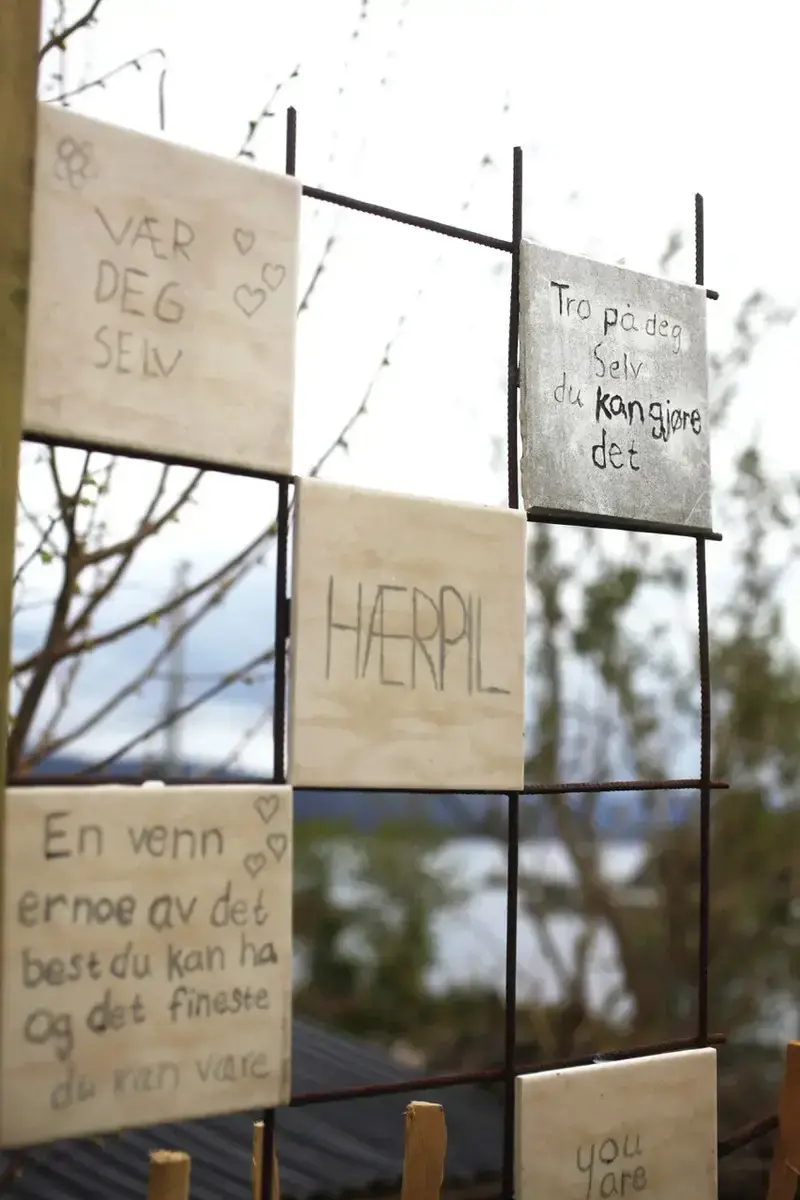 VÆR
DEG
SELV
Tro på deg
Selv
du kan gjøre
det
HÆRPIL
En venn
ernoe av det
best du kan ha
og det fineste
du kan være
you
are